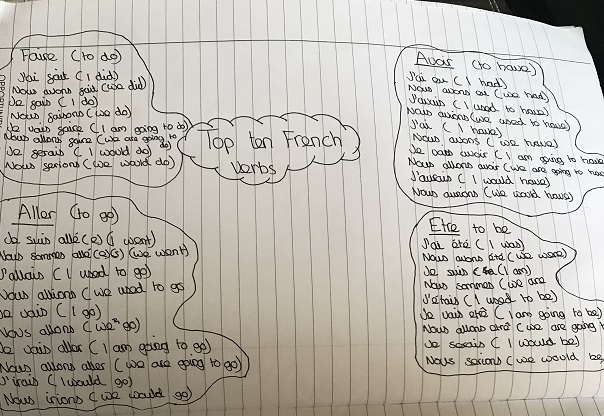 Faire (to do)
J'ai fait (I did)
Nous avons fait (we did)
Je fais (I do)
Nous faisons (we do)
Je vais faire (I am going to do)
Nous allons faire (we are going to do)
Je ferais (I would do)
Nous ferions (we would do)
Top ten French
Verbs
Avoir (to have)
J'ai eu (I had)
Nous avons eu (we had)
J'avais (I used to have)
Nous avions (we used to have)
J'ai (I have)
Nous avons (we have)
Je vais avoir (I am going to have
Nous allons avoir (we are going to hav
J'aurais (I would have)
Nous aurions (we would have)
Aller (to go)
Je suis allé(e) (I went)
Nous sommes allé(e)(s) (we went)
J'allais (I used to go)
Nous allions (we used to go
Je vais (I go)
Nous allons (we go)
Je vais aller (I am going to go)
Nous allons aller (we are going to go)
J'irais (I would go)
Nous irions (we would go)
Etre to be
J'ai été (I was)
Nous avons été (we were)
Je suis (I am)
Nous sommes (we are
J'étais (I used to be)
Je vais etre (I am going to be)
Nous allons etre (we are going
Je serais (I would be)
Nous serions (we would be